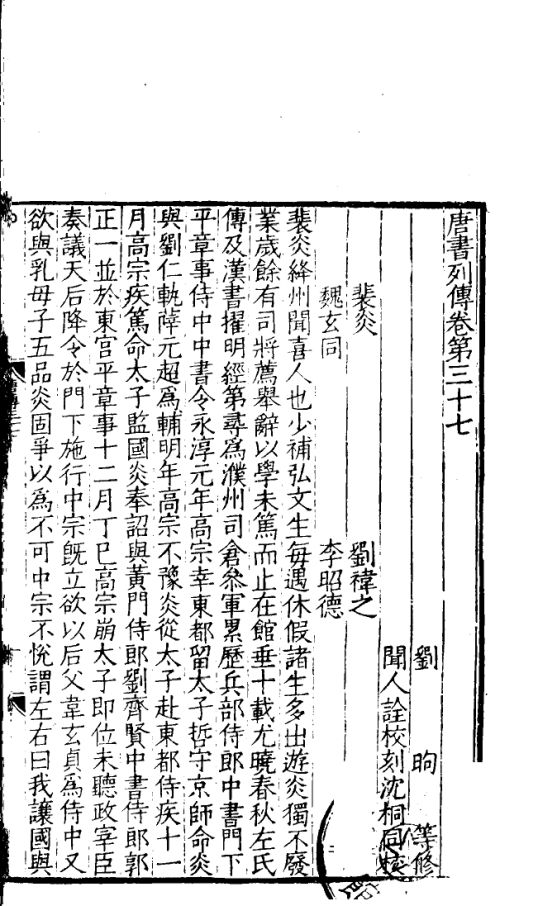 唐書列傳卷第三十七
劉昫等修
聞人詮校刻沈桐同校
裴炎 劉禕之
魏玄同 李昭德
裴炎絳州聞喜人也少補弘文生每遇休假諸生多出遊炎獨不廢
業歲餘有司將薦舉辭以學未篤而止在館垂十載尤曉春秋左氏
傳及漢書擢明經第尋爲濮州司倉叅軍累歷兵部侍郎中書門下
平章事侍中中書令永淳元年高宗幸東都留太子哲守京師命炎
與劉仁軌薛元超爲輔明年高宗不豫炎從太子赴東都侍疾十一
月高宗疾篤命太子監國炎奉詔與黃門侍郎劉齊賢中書侍郎郭
正一並於東宮平章事十二月丁巳高宗崩太子即位未聽政宰臣
奏議天后降令於門下施行中宗旣立欲以后父韋玄貞爲侍中又
欲與乳母子五品炎固爭以爲不可中宗不悅謂左右曰我讓國與